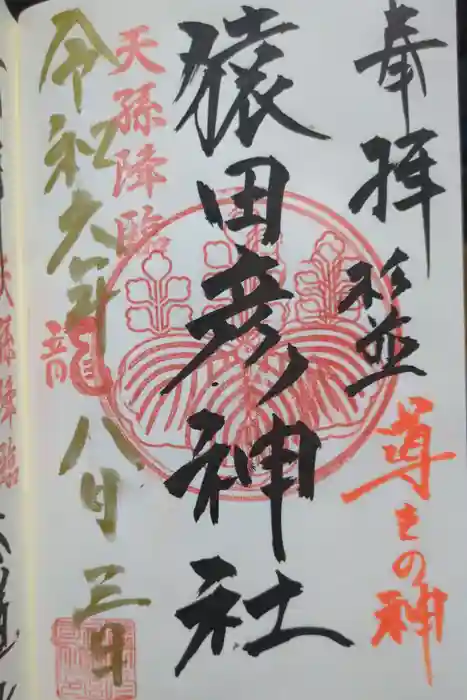 奉拝
杉並
尊きの神
猿田彦神社
天孫降臨
令和六年
龍
八月三日
天孫降臨